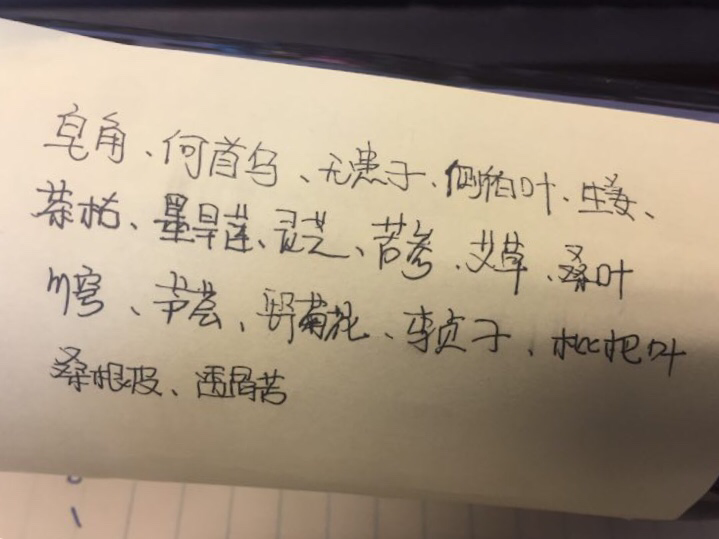 皂角、何首乌、无患子、侧柏叶、生姜、
茶枯、墨旱莲、灵芝、苦参、艾草、桑叶
川穹、芦荟、野菊花、李贞子、枇杷叶
桑根皮、透骨苦